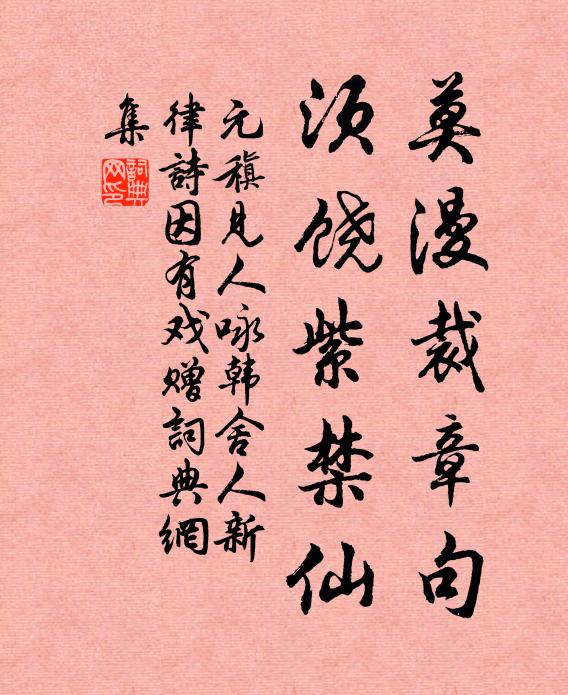 莫漫裁章句
须饶紫禁仙
元稹见人咏韩舍人新
律詩因有戏赠詞典網
集
詞典网印